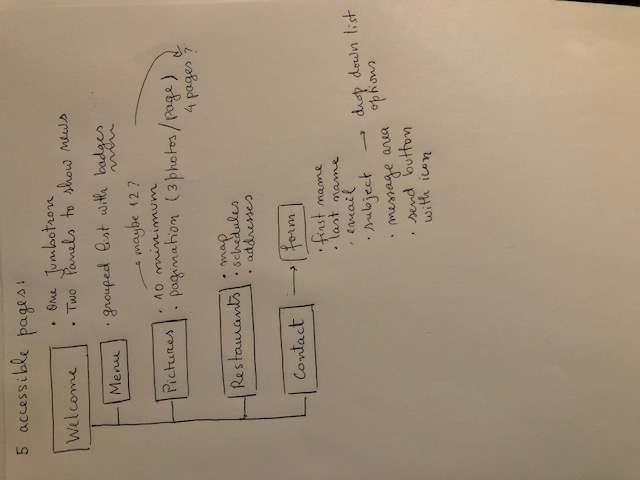 5 accessible pages:
Welcome
• One Jumbotron
• Two Panels to show news
Menu
• grouped list with badges
Pictures
→ maybe 12?
• 10 minimum
• pagination (3 photos/page)
4 pages?
Restaurants
• map
• schedules
• addresses
Contact → form
• first name
• last name
• email
• subject → drop down list
options
• message area
• send button
with icon